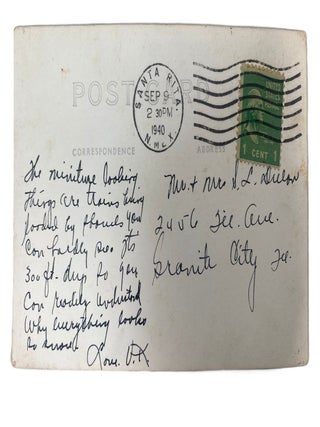 POST CARD
SANTA RITA.
SEP 9
2 30 PM
1940
N. MEX.
UNITED
1 CENT 1
CORRESPONDENCE
ADDRESS
The miniture looking
things are trains being
loaded by shovels you
can hardly see. It's
300 ft. deep so you
can readily understand
Why everything looks
so small.
Love. V.K.
Mr & Mrs S. L.
2456 Ill. Ave.
Granit City Ill.